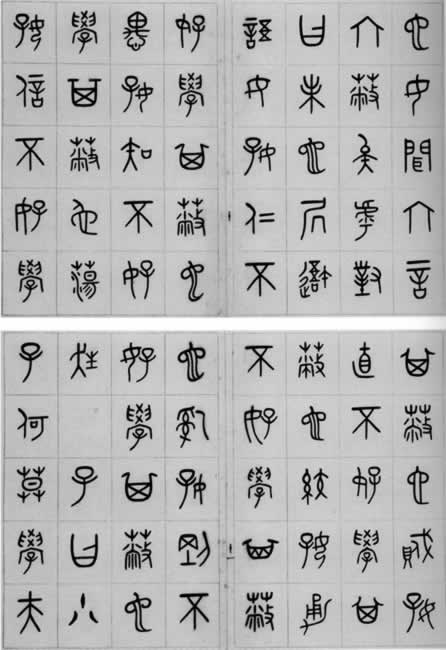 也女聞六言
六蔽矣乎對
曰未也居吾
語女好仁不
好學其蔽也
愚好知不好
學其蔽也蕩
好信不好學
其蔽也賊好
直不好學其
蔽也絞好勇
不好學其蔽
也亂好剛不
好學其蔽也
狂 子曰小
子何莫學夫